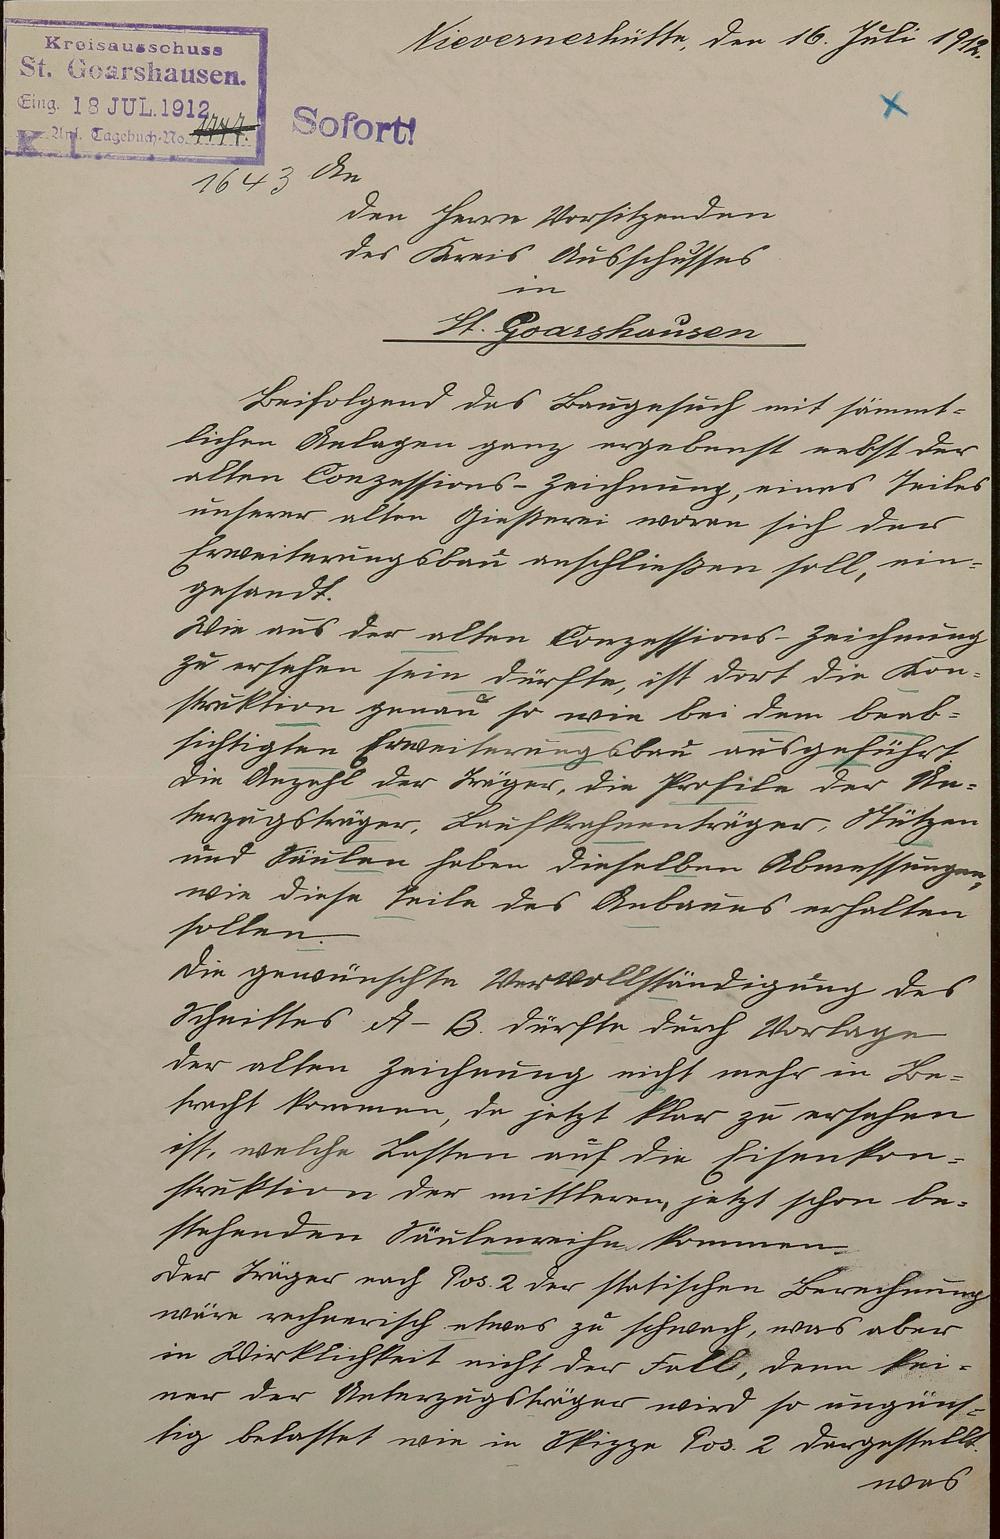 Nievernerhütte, den 16. Juli 1912.
Kreisausschuss
St. Goarshausen.
Eing. 18 JUL. 1912
Anl. Tagebuch-No. 1777.
K. I.
Sofort!
1643
An
den Herrn Vorsitzenden
des Kreis Ausschusses
in
St. Goarshausen
Beifolgend das Baugesuch mit sämmt-
lichen Anlagen ganz ergebenst nebst der
alten Conzessions-Zeichnung, eines Teiles
unserer alten Gießerei woran sich der
Erweiterungsbau anschließen soll, ein-
gesandt.
Wie aus der alten Conzessions-Zeichnung
zu ersehen sein dürfte, ist dort die Kon-
struktion genau so wie bei dem beab-
sichtigten Erweiterungsbau ausgeführt.
Die Anzahl der Träger, die Profile der Un-
terzugsträger, Laufkrahnenträger, Stützen
und Säulen haben dieselben Abmessungen,
wie diese Teile des Anbaues erhalten
sollen.
Die gewünschte Vervollständigung des
Schnittes A-B. dürfte durch Vorlage
der alten Zeichnung nicht mehr in Be-
tracht kommen, da jetzt klar zu ersehen
ist, welche Lasten auf die Eisenkon-
struktion der mittleren, jetzt schon be-
stehenden Säulenreihe kommen.
Der Träger nach Pos. 2 der statischen Berechnung
wäre rechnerisch etwas zu schwach, was aber
in Wirklichkeit nicht der Fall, denn kei-
ner der Unterzugsträger wird so ungüns-
tig belastet wie in Skizze Pos. 2 dargestellt.
was